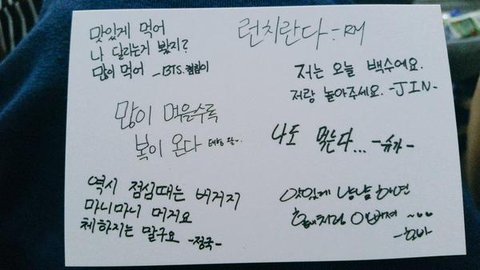 맛있게 먹어
나 달라는게 봤지?
많이 먹어 -BTS.
런치란다 - RM
저는 오늘 백수에요.
저랑 놀아주세요. -JIN-
많이 먹을수록
복이 온다
나도 먹는다... -슈가-
역시 점심때는 버거지
마니마니 머거요
체하지는 말구요 -정국-
맛있게 냠냠 하면